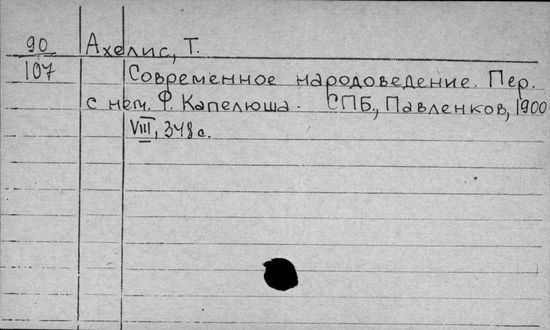 90 Ахелис, Т.
107 Современное народоведение. Пер.
с нем. Ф. Капелюша. СПБ., Павленков, 1900
VIII, 348 с.